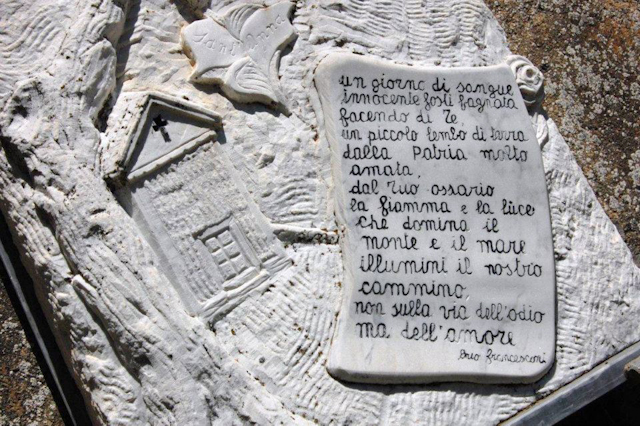 Sant'Anna
un giorno di sangue
innocente fosti bagnata
facendo di Te
un piccolo lembo di terra
dalla Patria molto
amata,
dal Tuo ossario
la fiamma e la luce
che domina il
monte e il mare
illumini il nostro
cammino
non sulla via dell'odio
ma dell'amore
Francesconi